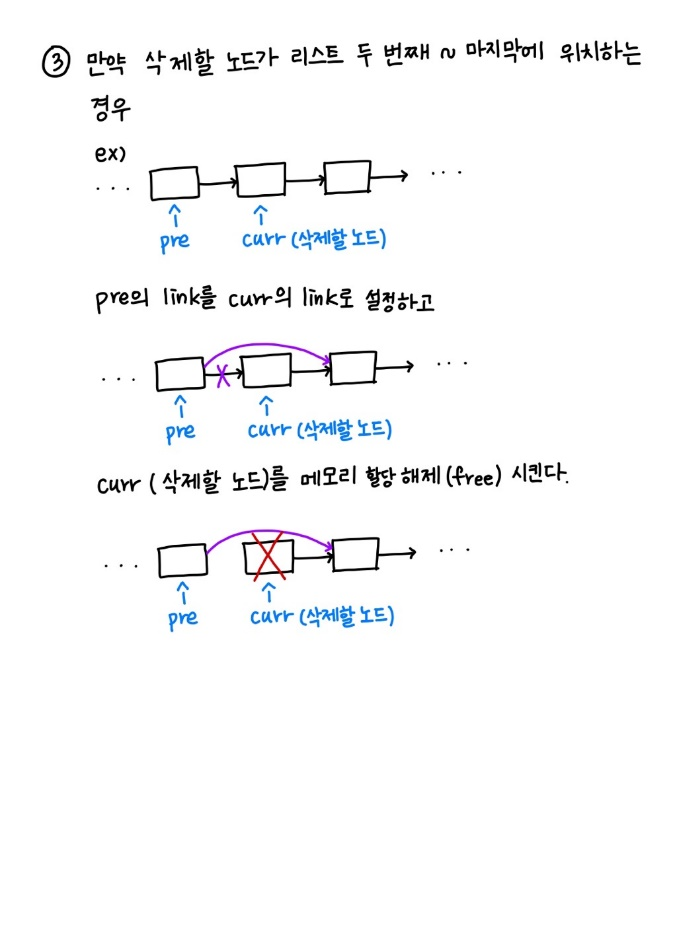 ③ 만약 삭제할 노드가 리스트 두 번째 ~ 마지막에 위치하는
경우
ex)
... ...
pre curr (삭제할 노드)
pre의 link를 curr의 link로 설정하고
... ...
pre curr (삭제할 노드)
curr (삭제할 노드)를 메모리 할당 해제(free) 시킨다.
... ...
pre curr (삭제할 노드)